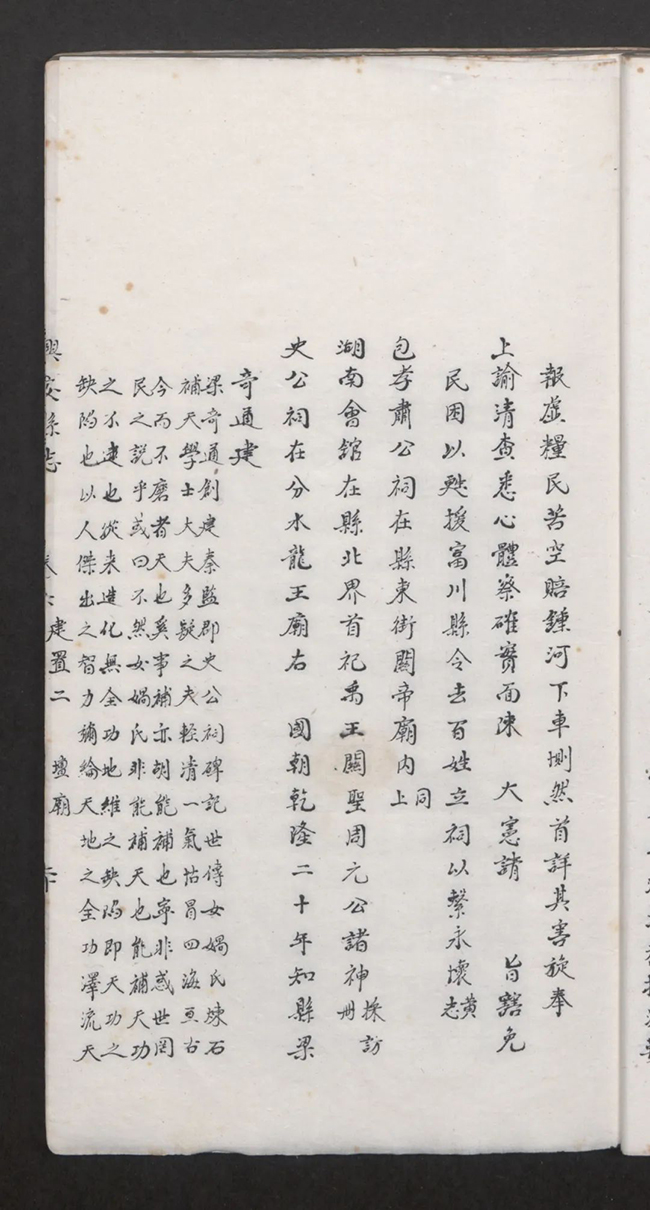 報虛糧民苦空賠鍾河下車惻然首詳其害旋奉
上諭清查悉心體察確實面陳　大憲請　旨豁免
民困以甦援富川縣令去百姓立祠以繫永懷黃志
包孝肅公祠在縣東街關帝廟內同上
湖南會館在縣北界首祀禹王關聖周元公諸神採訪冊
史公祠在分水龍王廟右　國朝乾隆二十年知縣梁
奇通建
梁奇通創建秦監郡史公祠碑記世傳女媧氏煉石
補天學士大夫多疑之夫輕清一氣怙冒四海亘古
今而不磨者天也奚事補亦胡能補也寧非惑世罔
民之說乎或曰不然女媧氏非能補天也能補天功
之不逮也從來造化無全功地維之缺陷即天功之
缺陷也以人傑出之智力彌綸天地之全功澤流天
興安縣志　卷　建置二　壇廟